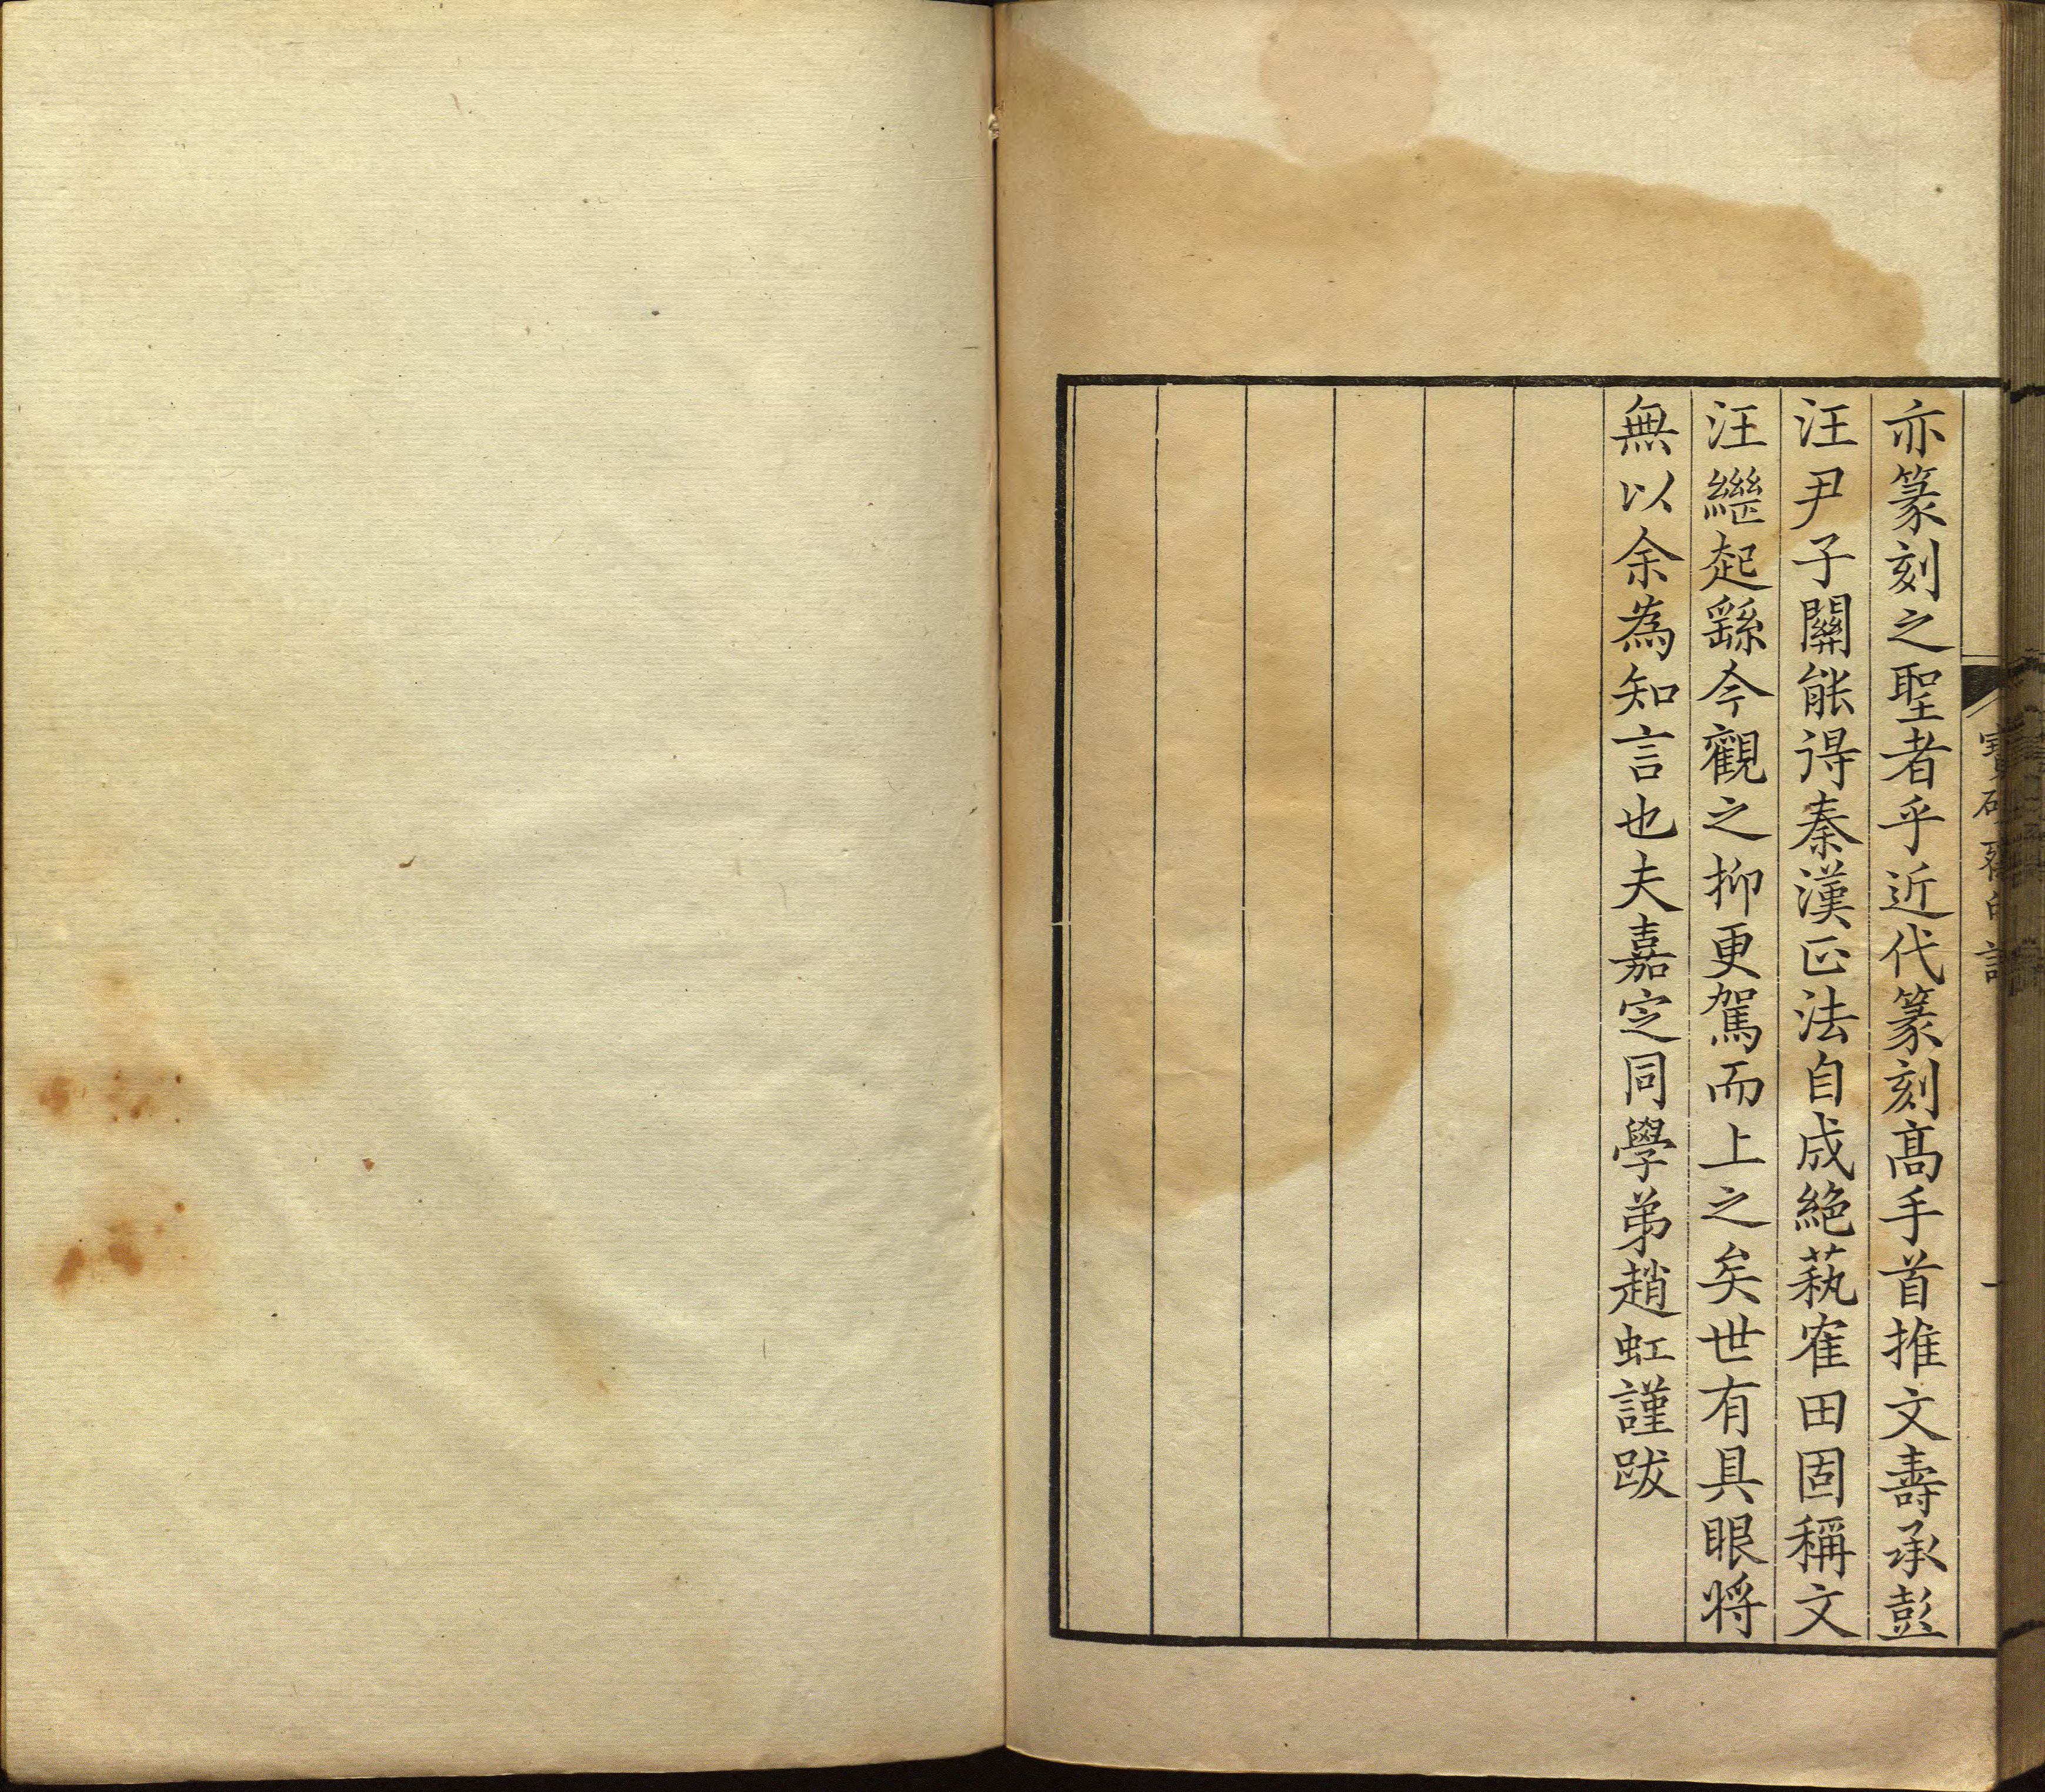 亦篆刻之聖者乎近代篆刻髙手首推文壽承彭
汪尹子關能得秦漢正法自成絶蓺寉田固稱文
汪繼起繇今觀之抑更駕而上之矣世有具眼將
無以余為知言也夫嘉定同學弟趙虹謹跋